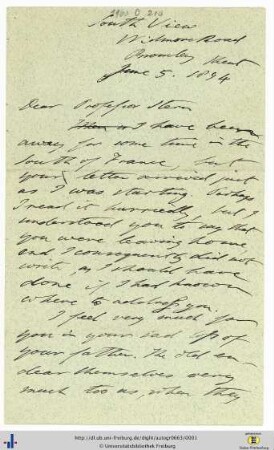 South View
Widmore Road
Bromley Kent
June 5. 1894
Dear Professor Stern
I have been
away for some time in the
South of France, but
your letter arrived just
as I was starting. Perhaps
I read it hurriedly, but I
understood you to say that
you were leaving home,
and I consequently did not
write, as I should have
done if I had known
where to address you.
I feel very much for
you in your loss of
your father. The old en
dear themselves very
much to us, when they
http://dl.ub.uni-freiburg.de/diglit/autogr0663/0001
© Universitätsbibliothek Freiburg